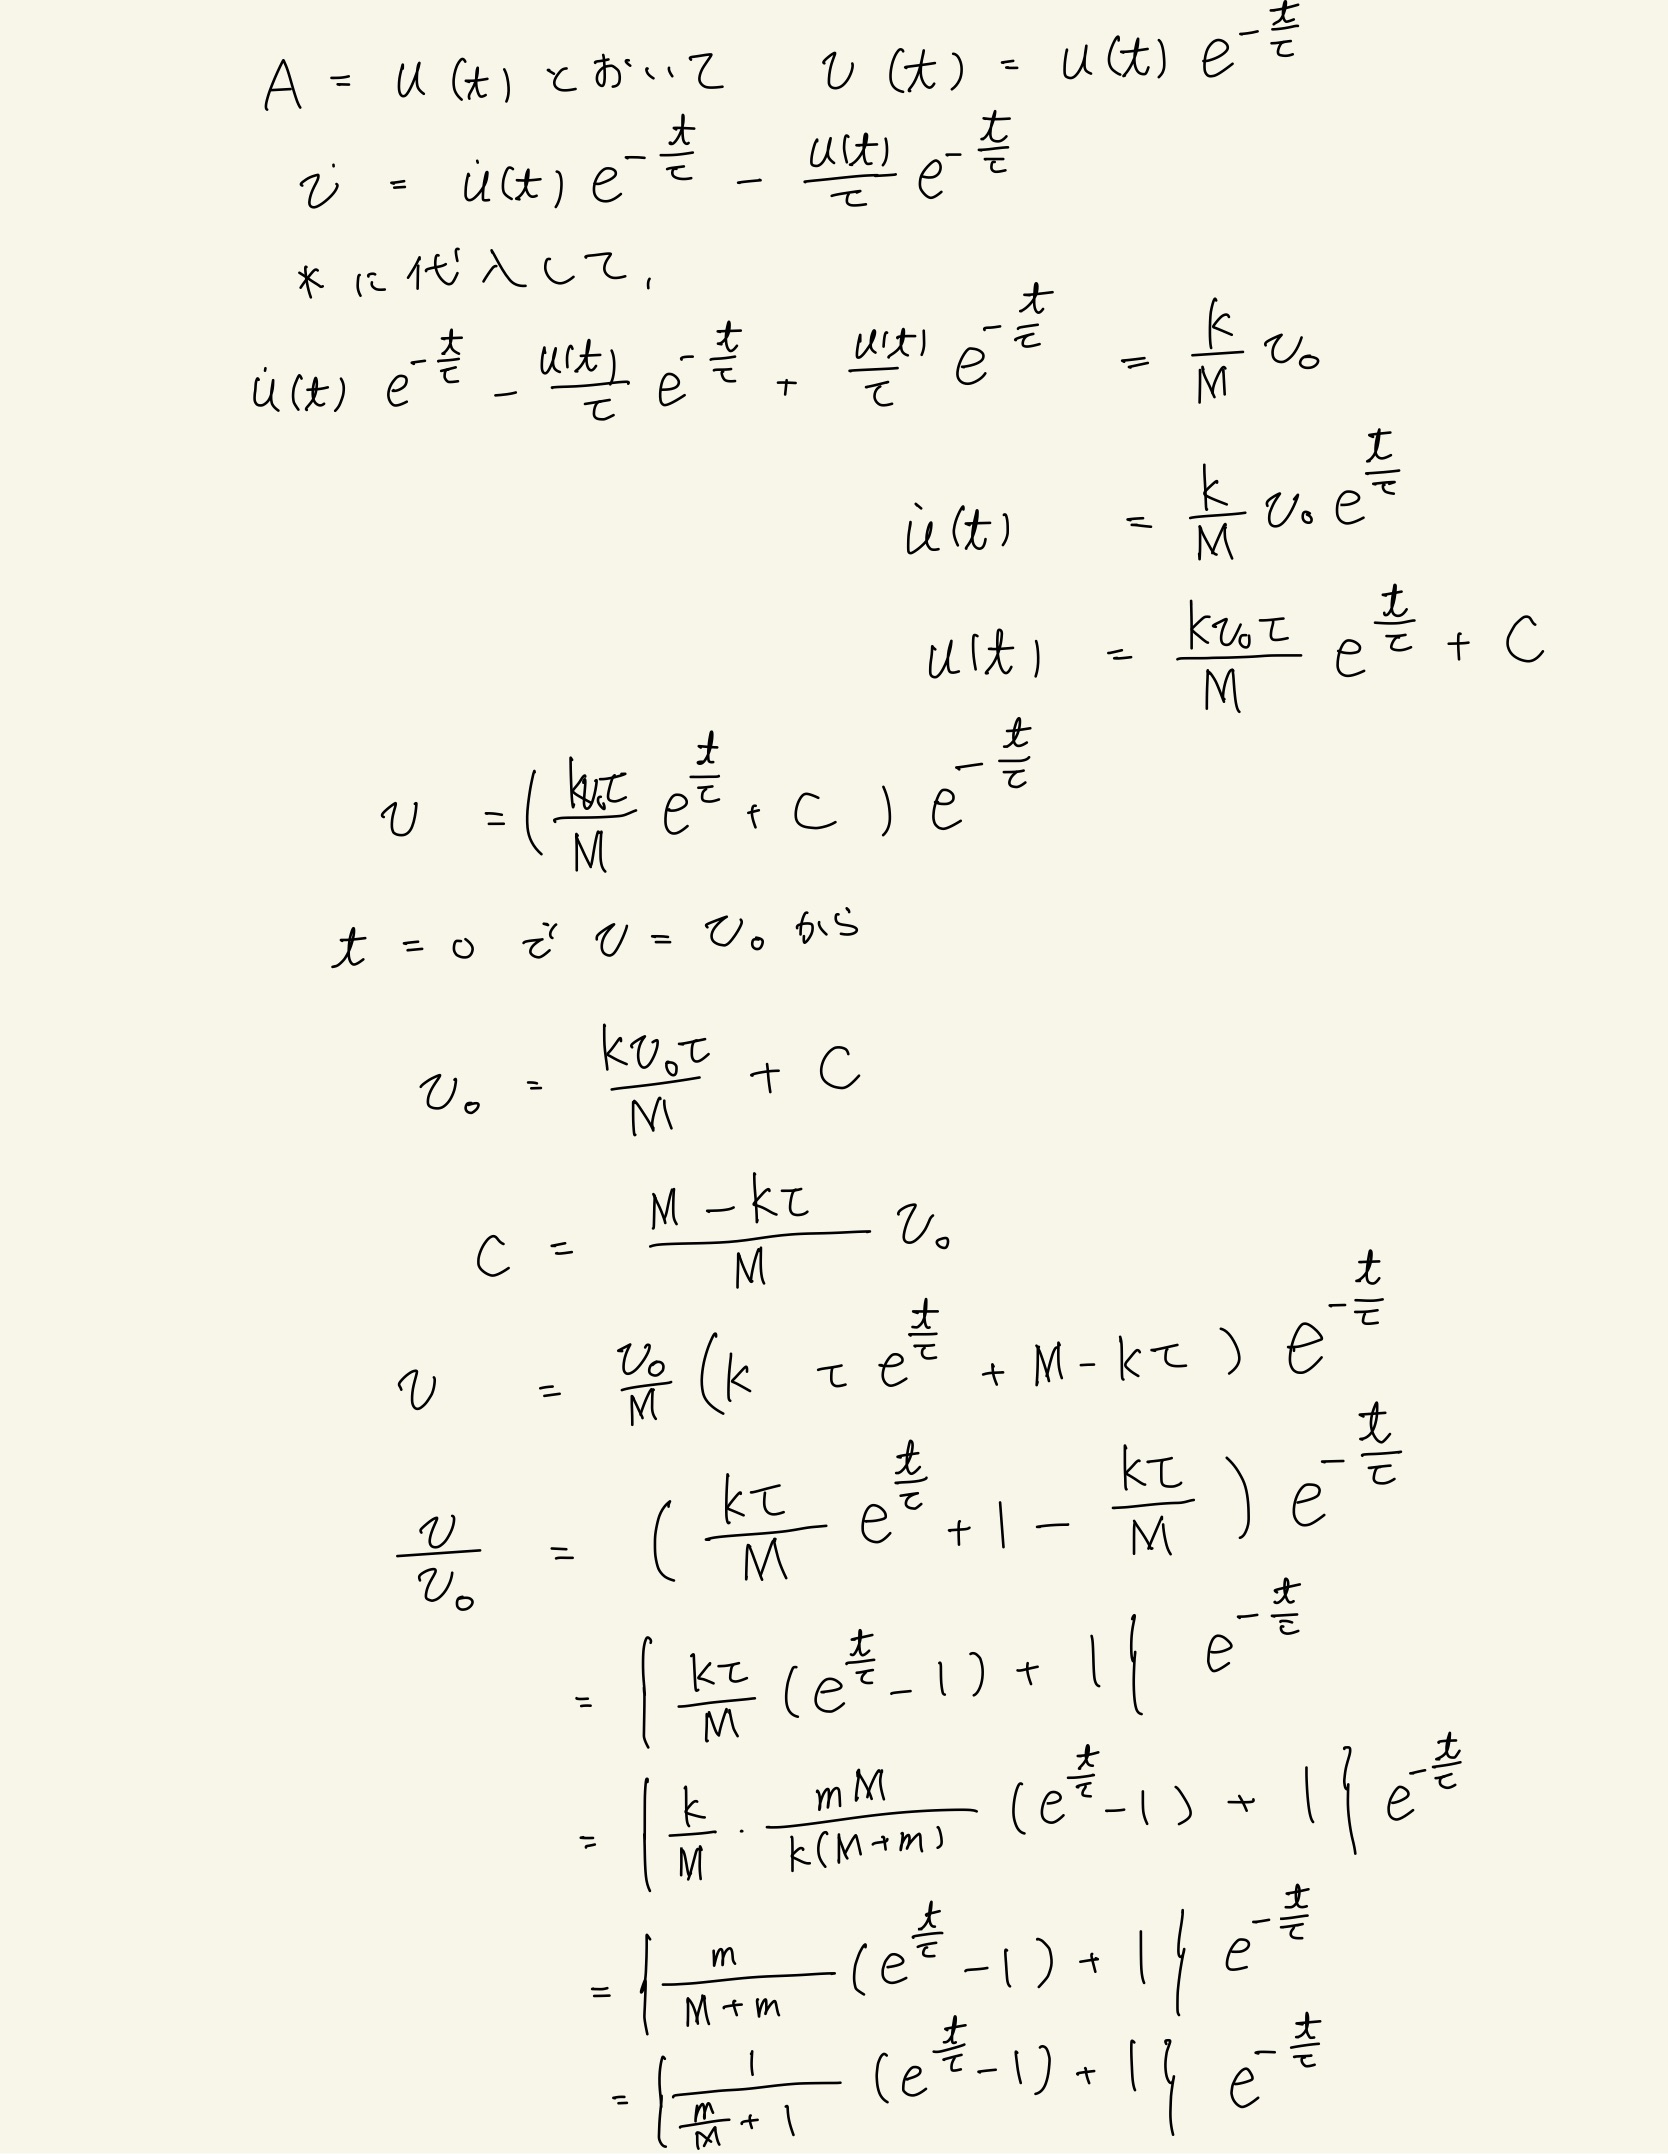 A = u(t) とおいて v(t) = u(t) e^{-t/τ}
v̇ = u̇(t) e^{-t/τ} - u(t)/τ e^{-t/τ}
* に代入して,
u̇(t) e^{-t/τ} - u(t)/τ e^{-t/τ} + u(t)/τ e^{-t/τ} = k/M v₀
u̇(t) = k/M v₀ e^{t/τ}
u(t) = kv₀τ/M e^{t/τ} + C
v = (kv₀τ/M e^{t/τ} + C) e^{-t/τ}
t = 0 で v = v₀ から
v₀ = kv₀τ/M + C
C = (M - kτ)/M v₀
v = v₀/M (k τ e^{t/τ} + M - kτ) e^{-t/τ}
v/v₀ = (kτ/M e^{t/τ} + 1 - kτ/M) e^{-t/τ}
= {kτ/M (e^{t/τ} - 1) + 1} e^{-t/τ}
= {k/M · mM/k(M+m) (e^{t/τ} - 1) + 1} e^{-t/τ}
= {m/(M+m) (e^{t/τ} - 1) + 1} e^{-t/τ}
= {1/(m/M + 1) (e^{t/τ} - 1) + 1} e^{-t/τ}